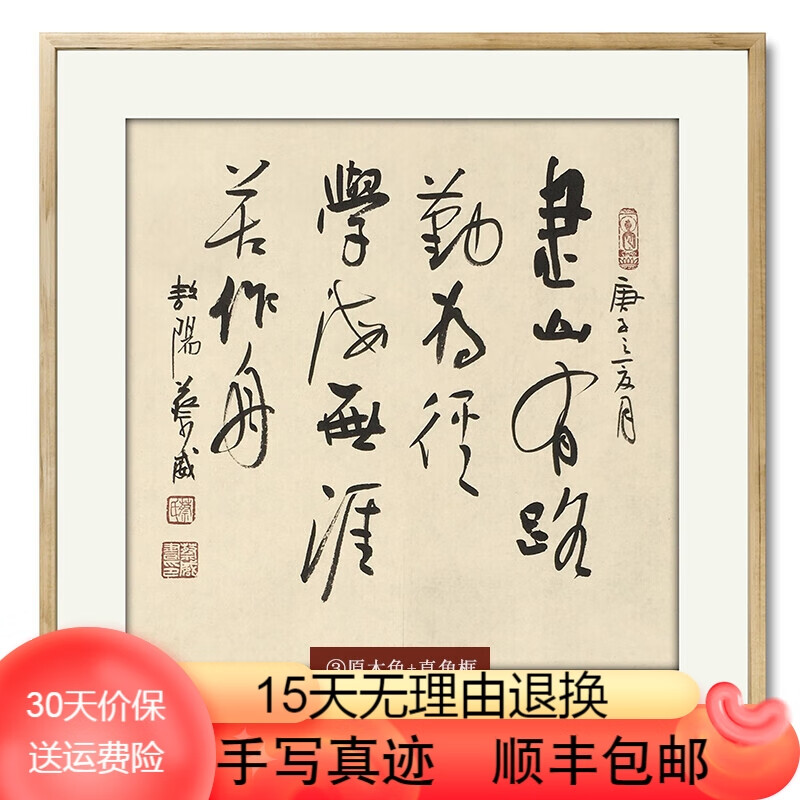 庚子之夏月
書山有路
勤为徑
學海無涯
苦作舟
陽蔡威
蔡氏
蔡威書印
③原木色+直角框
15天无理由退换
30天价保
送运费险
手写真迹 顺丰包邮